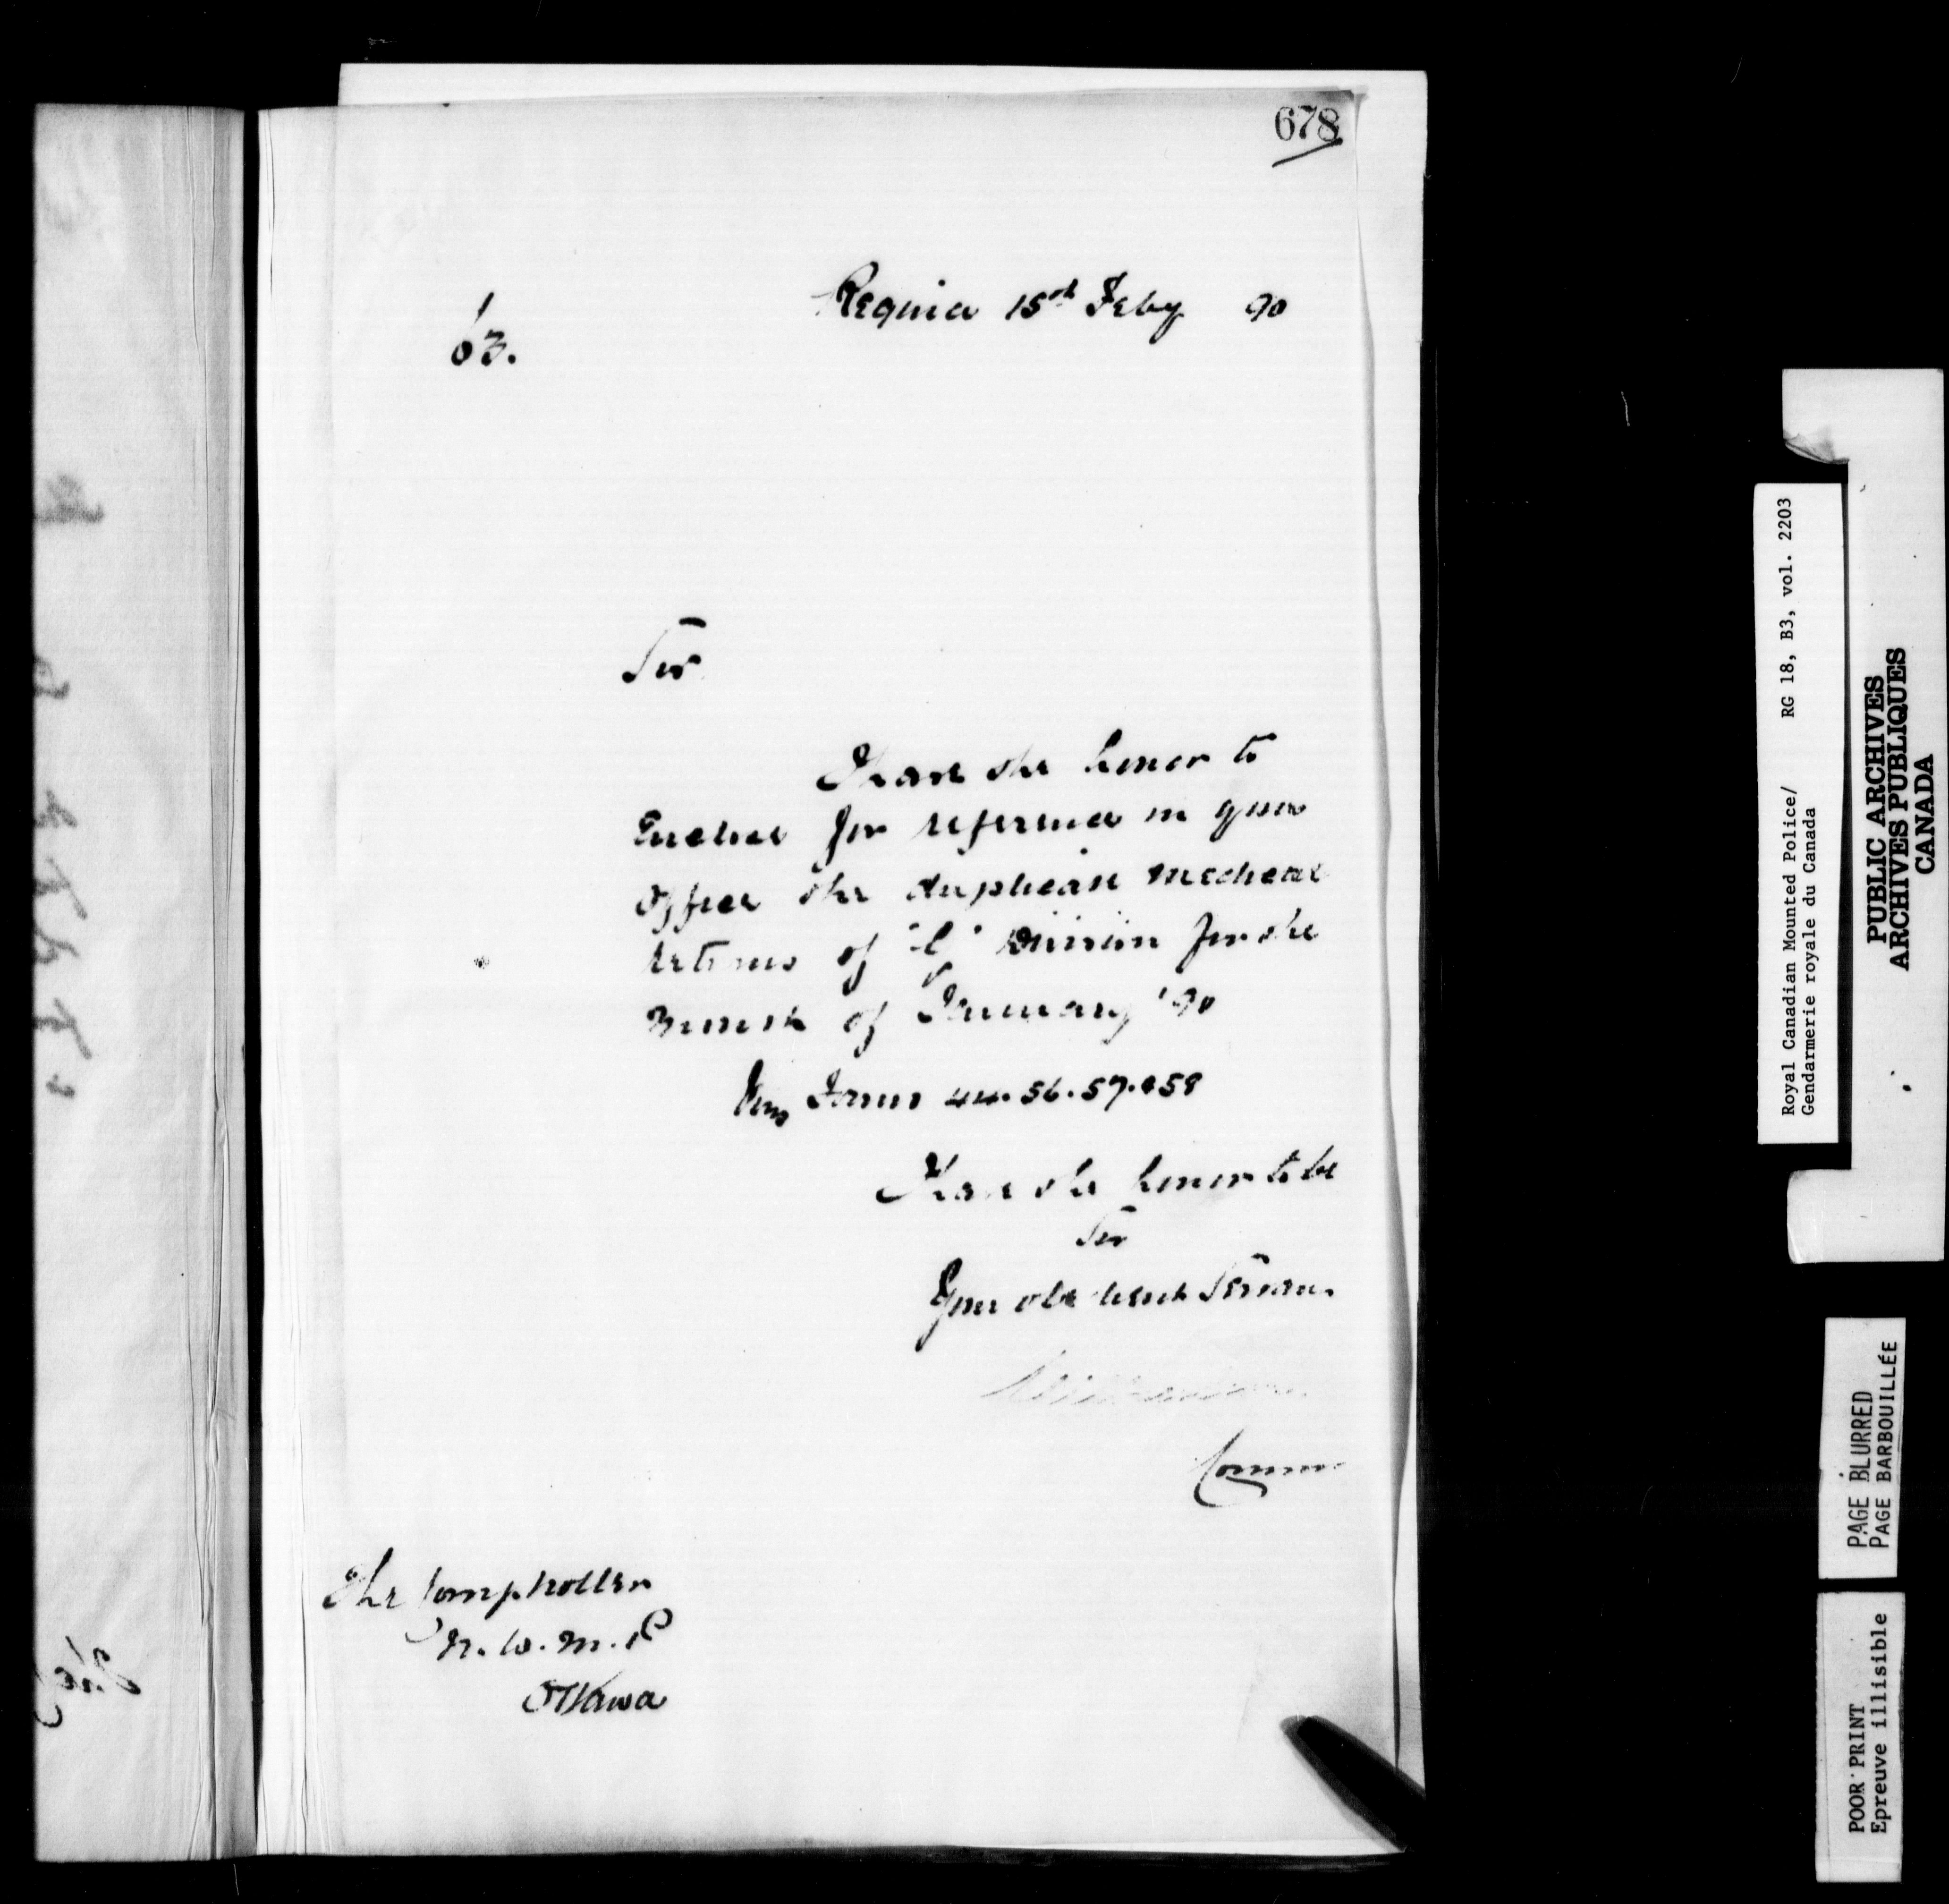 678
Regina 15th Feby 90
1
63.
Sir
I have the honor to
Enclose for reference in your
Office the duplicate medical
returns of "G" Division for the
Month of January '90
Forms 44. 56. 57. & 58
I have the honor to be
Sir
Your obedient Servant
Commr
The Comptroller
N. W. M. P
Ottawa
Royal Canadian Mounted Police/ RG 18, B3, vol. 2203
Gendarmerie royale du Canada
PUBLIC ARCHIVES
ARCHIVES PUBLIQUES
CANADA
PAGE BLURRED
PAGE BARBOUILLÉE
POOR PRINT
Epreuve illisible